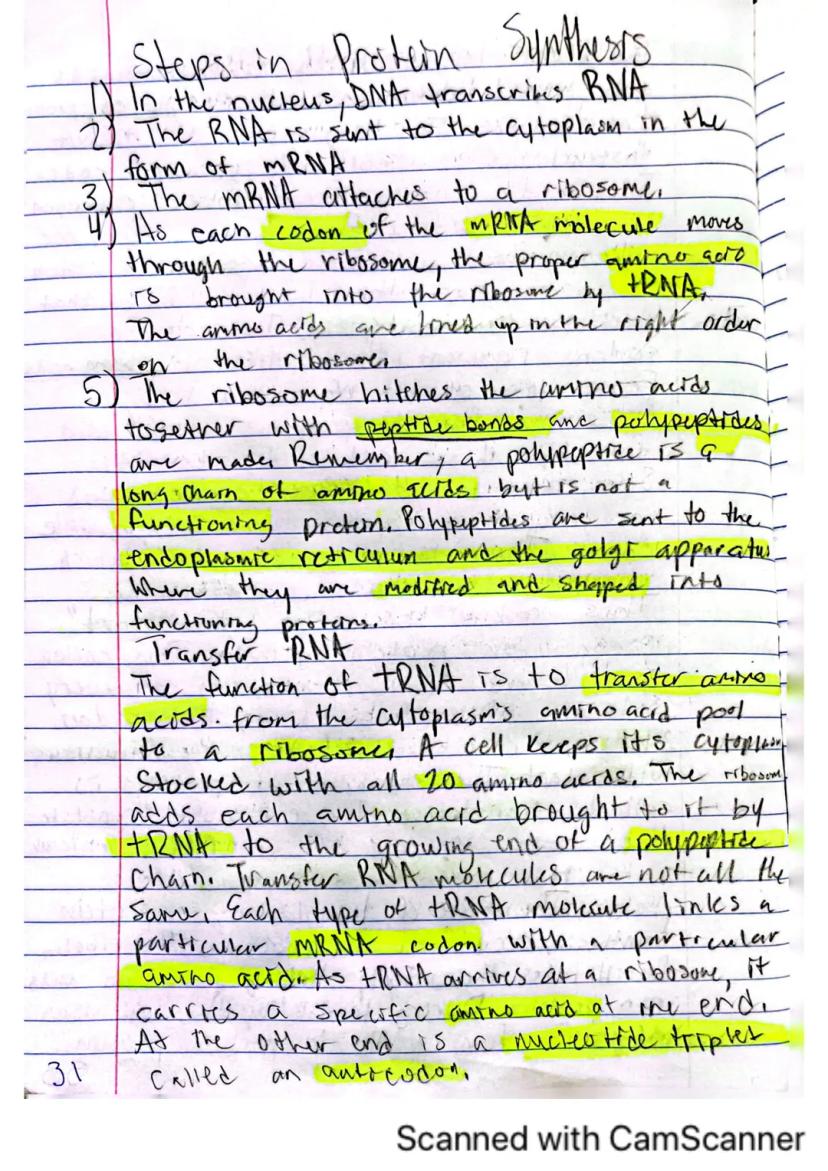 Steps in Protein Synthesis
1) In the nucleus, DNA transcribes RNA
2) The RNA is sent to the cytoplasm in the
form of mRNA
3) The mRNA attaches to a ribosome.
4) As each codon of the mRNA molecule moves
through the ribosome, the proper amino acid
is brought into the ribosome by tRNA.
The amino acids are lined up in the right order
on the ribosome.
5) The ribosome hitches the amino acids
together with peptide bonds and polypeptides
are made. Remember, a polypeptide is a
long chain of amino acids but is not a
functioning protein. Polypeptides are sent to the
endoplasmic reticulum and the golgi apparatus
where they are modified and shapped into
functioning proteins.
Transfer RNA
The function of tRNA is to transfer amino
acids. from the cytoplasm's amino acid pool
to a ribosome. A cell keeps it's cytoplasm
stocked with all 20 amino acids. The ribosom
adds each amino acid brought to it by
tRNA to the growing end of a polypeptide
chain. Transfer RNA molecules are not all the
same. Each type of tRNA molecule links a
particular mRNA codon with a particular
amino acid. As tRNA arrives at a ribosome, it
carries a specific amino acid at one end.
At the other end is a nucleotide triplet
called an anticodon.
31
Scanned with CamScanner